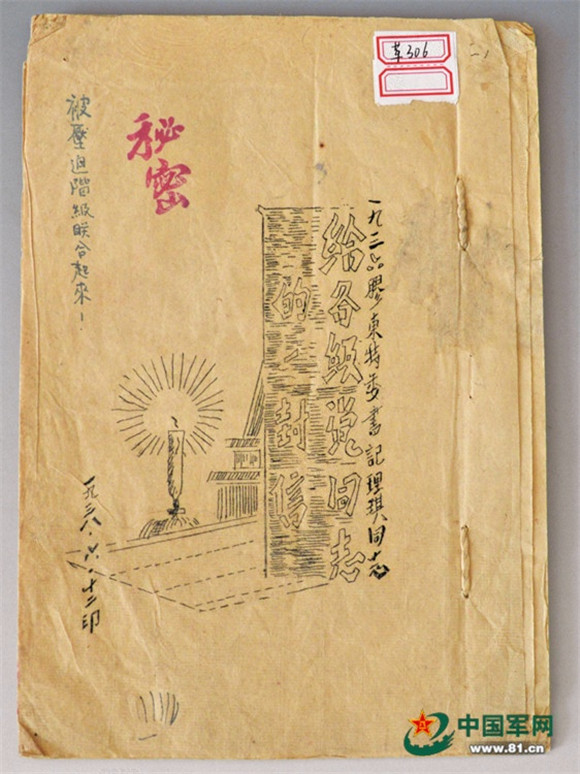 革306
一九三六膠東特委書記理琪同志
给各级党同志
的一封信
秘密
被壓迫階級联合起來！
一九三八·六·十二印
中国军网
www.81.cn